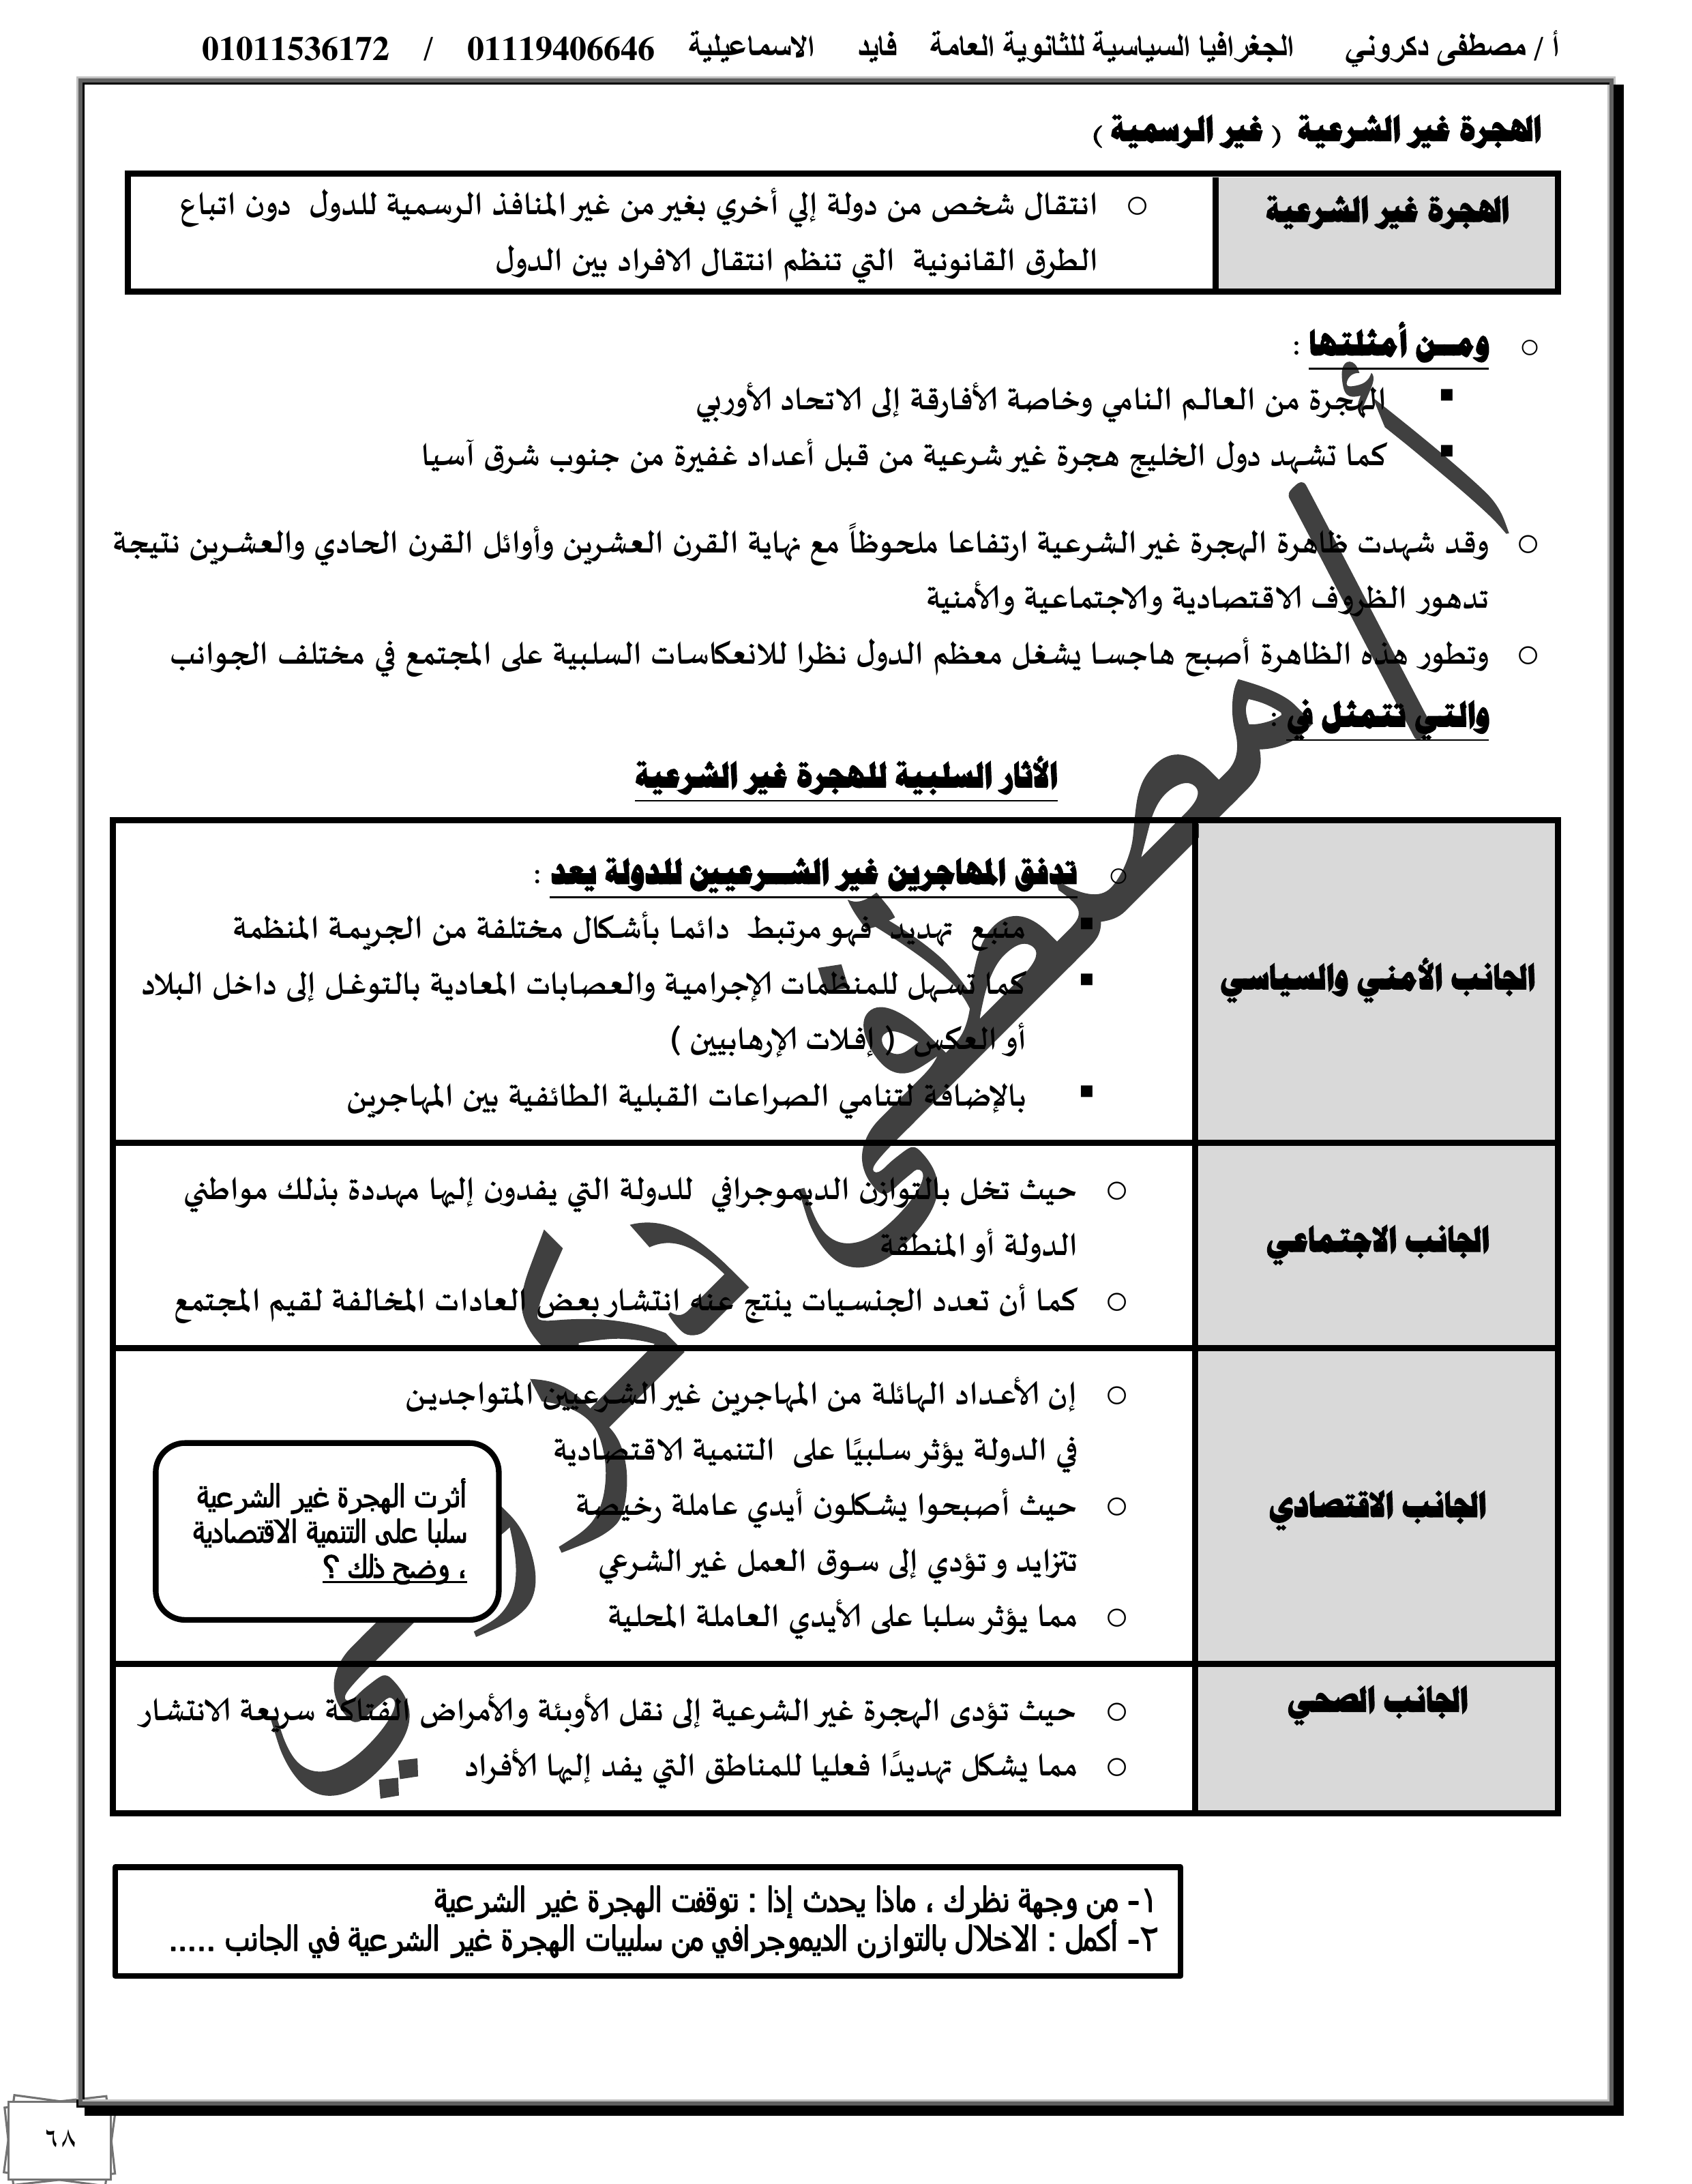 أ / مصطفى دكروني الجغرافيا السياسية للثانوية العامة فايد الاسماعيلية 01119406646 / 01011536172
الهجرة غير الشرعية ( غير الرسمية )
الهجرة غير الشرعية
○ انتقال شخص من دولة إلي أخري بغير من غير المنافذ الرسمية للدول دون اتباع
الطرق القانونية التي تنظم انتقال الافراد بين الدول
○ ومـــن أمثلتها :
▪ الهجرة من العالم النامي وخاصة الأفارقة إلى الاتحاد الأوربي
▪ كما تشهد دول الخليج هجرة غير شرعية من قبل أعداد غفيرة من جنوب شرق آسيا
○ وقد شهدت ظاهرة الهجرة غير الشرعية ارتفاعا ملحوظاً مع نهاية القرن العشرين وأوائل القرن الحادي والعشرين نتيجة
تدهور الظروف الاقتصادية والاجتماعية والأمنية
○ وتطور هذه الظاهرة أصبح هاجسا يشغل معظم الدول نظرا للانعكاسات السلبية على المجتمع في مختلف الجوانب
والتي تتمثل في :
الأثار السلبية للهجرة غير الشرعية
الجانب الأمني والسياسي
○ تدفق المهاجرين غير الشـــرعيين للدولة يعد :
▪ منبع تهديد فهو مرتبط دائما بأشكال مختلفة من الجريمة المنظمة
▪ كما تسهل للمنظمات الإجرامية والعصابات المعادية بالتوغل إلى داخل البلاد
أو العكس ( إفلات الإرهابيين )
▪ بالإضافة لتنامي الصراعات القبلية الطائفية بين المهاجرين
الجانب الاجتماعي
○ حيث تخل بالتوازن الديموجرافي للدولة التي يفدون إليها مهددة بذلك مواطني
الدولة أو المنطقة
○ كما أن تعدد الجنسيات ينتج عنه انتشار بعض العادات المخالفة لقيم المجتمع
الجانب الاقتصادي
○ إن الأعداد الهائلة من المهاجرين غير الشرعيين المتواجدين
في الدولة يؤثر سلبيًا على التنمية الاقتصادية
○ حيث أصبحوا يشكلون أيدي عاملة رخيصة
تتزايد و تؤدي إلى سوق العمل غير الشرعي
○ مما يؤثر سلبا على الأيدي العاملة المحلية
أثرت الهجرة غير الشرعية
سلبا على التنمية الاقتصادية
، وضح ذلك ؟
الجانب الصحي
○ حيث تؤدى الهجرة غير الشرعية إلى نقل الأوبئة والأمراض الفتاكة سريعة الانتشار
○ مما يشكل تهديدًا فعليا للمناطق التي يفد إليها الأفراد
١- من وجهة نظرك ، ماذا يحدث إذا : توقفت الهجرة غير الشرعية
٢- أكمل : الاخلال بالتوازن الديموجرافي من سلبيات الهجرة غير الشرعية في الجانب .....
٦٨
أ / مصطفى دكروني